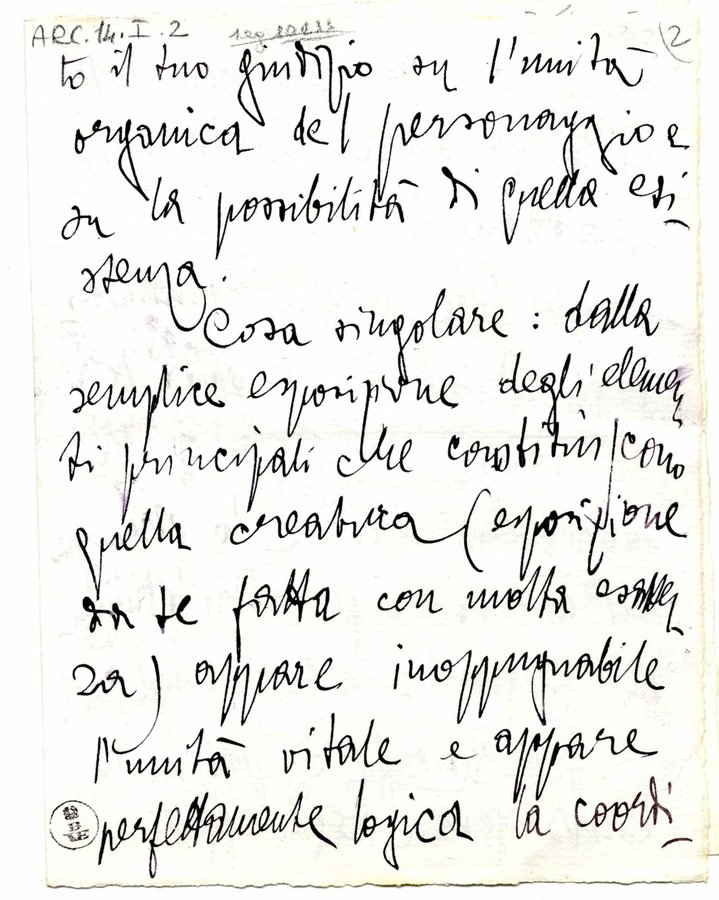 ARC.14.I.2
2
to il tuo giudizio su l'unità
organica del personaggio e
su la possibilità di quella esi_
stenza.
Cosa singolare : dalla
semplice esposizione degli elemen_
ti principali che costituiscono
quella creatura (esposizione
da te fatta con molta esattez_
za) appare inoppugnabile
l'unità vitale e appare
perfettamente logica la coordi_